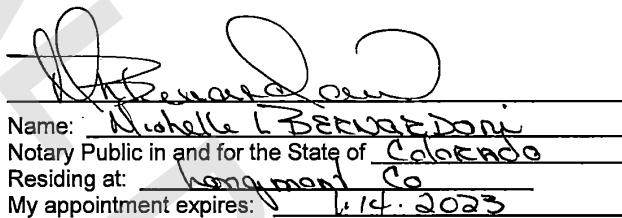 Name: Michelle L BERNARDONI
Notary Public in and for the State of COLORADO
Residing at: Longmont CO
My appointment expires: 1.14.2023